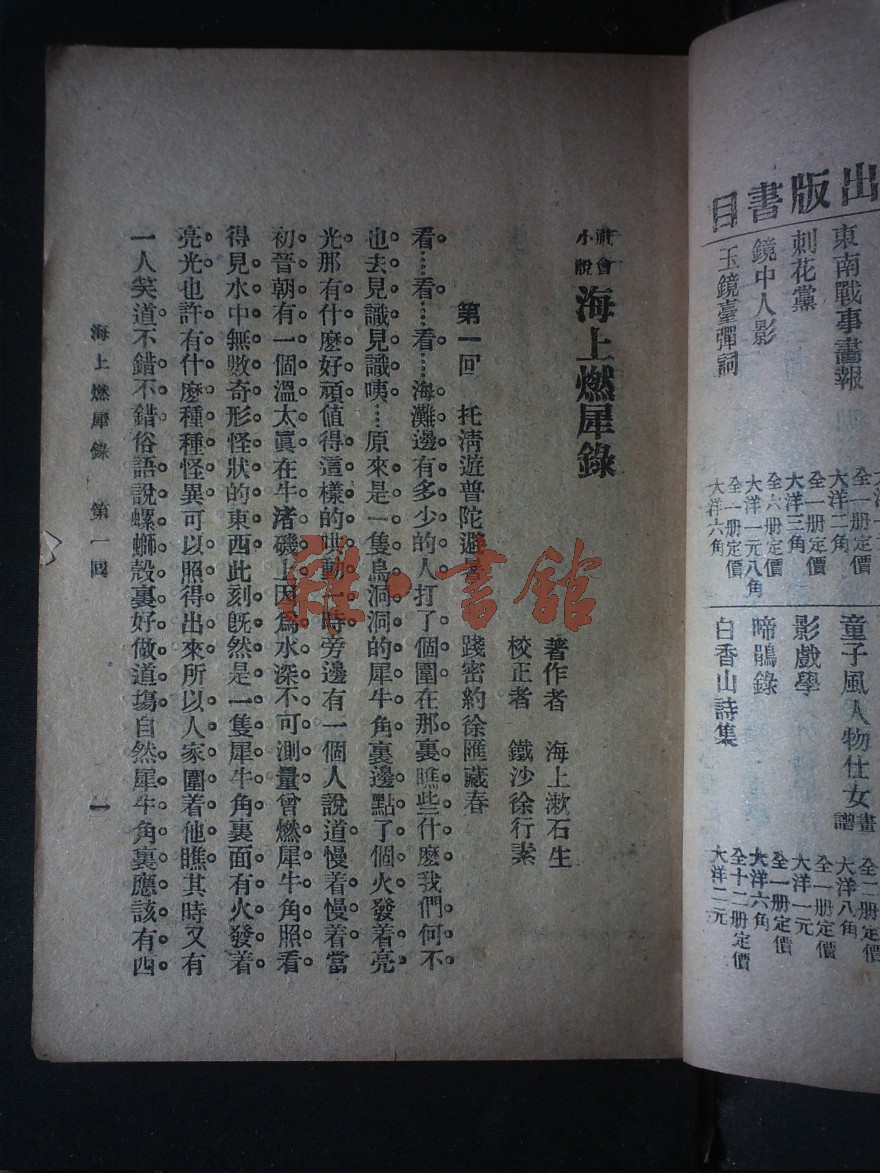 出版書目
東南戰事畫報
全一册定價
大洋二角
刺花黨
全一册定價
大洋三角
鏡中人影
全六册定價
大洋一元八角
玉鏡臺彈詞
全一册定價
大洋六角
童子風人物仕女畫譜
全二册定價
大洋八角
影戲學
全一册定價
大洋一元
啼鵑錄
全一册定價
大洋六角
白香山詩集
全十二册定價
大洋二元
社會小說 海上燃犀錄
著作者 海上漱石生
校正者 鐵沙徐行素
第一回 托清遊普陀避暑 踐密約徐匯藏春
看。看……看……海灘邊有多少的人打了個圍在那裏瞧些什麽我們何不。
也去見識見識咦……原來是一隻烏洞洞的犀牛角裏邊點了個火發着亮。
光那有什麽好頑值得這樣的哄動一時旁邊有一個人說道慢着慢着當
初晉朝有一個溫太眞在牛渚磯上因爲水深不可測量曾燃犀牛角照看
得見水中無數奇形怪狀的東西此刻既然是一隻犀牛角裏面有火發着。
亮光也許有什麽種種怪異可以照得出來所以人家圍着他瞧其時又有
一人笑道不錯不錯俗語說螺螄殼裏好做道塲自然犀牛角裏應該有西
海上燃犀錄 第一回 一
雜·書館